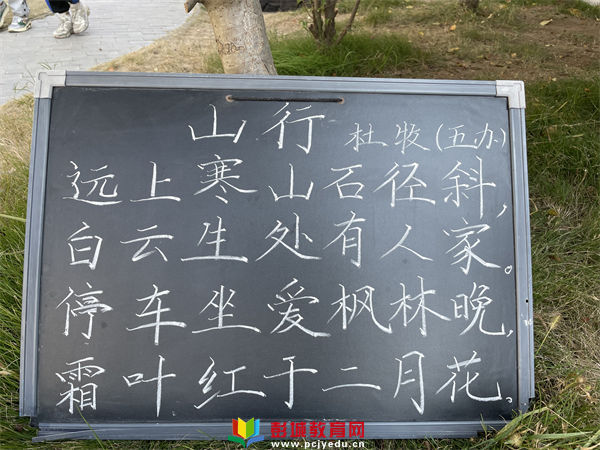 山行 杜牧(五办)
远上寒山石径斜,
白云生处有人家。
停车坐爱枫林晚,
霜叶红于二月花。
彭城教育网
www.pcjyedu.cn